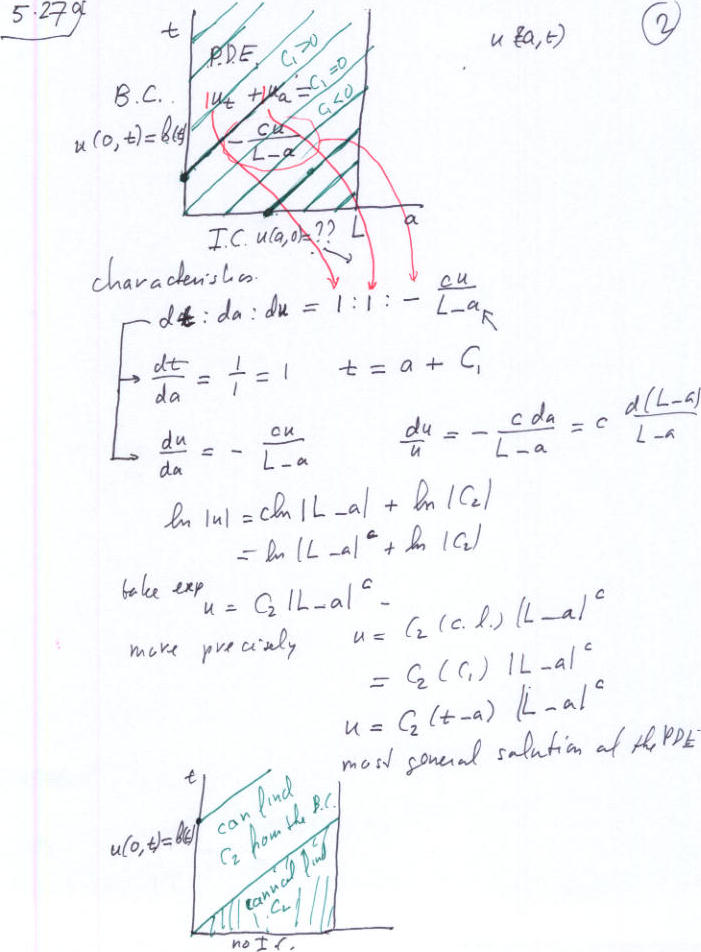 5.27a
②
t
u(a,t)
P.D.E.
C₁>0
C₁=0
C₁<0
B.C.
1u_t + 1u_a =
u(0,t)=b(t)
- cu/(L-a)
I.C. u(a,0)=??
L
a
characteristics.
dt : da : du = 1 : 1 : - cu/(L-a)
dt/da = 1/1 = 1 t = a + C₁
du/da = - cu/(L-a) du/u = - c da/(L-a) = c d(L-a)/(L-a)
ln |u| = c ln |L-a| + ln |C₂|
= ln |L-a|^c + ln |C₂|
take exp
u = C₂ |L-a|^c
more precisely u = C₂ (c.l.) |L-a|^c
= C₂ (C₁) |L-a|^c
u = C₂ (t-a) |L-a|^c
most general solution of the PDE
t
can find
C₂ from the B.C.
u(0,t)=b(t)
cannot find
C₂
no I.C.